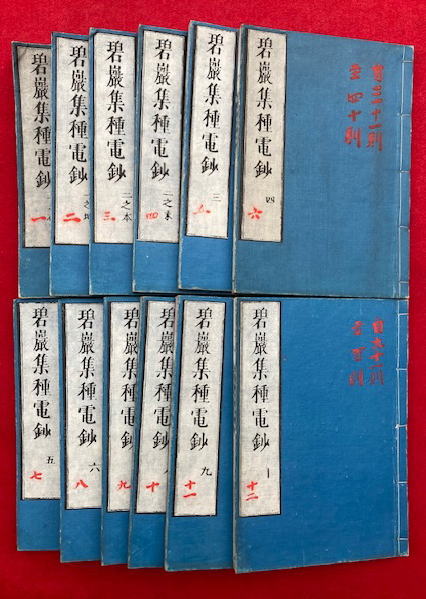 碧巖集種電鈔
一
碧巖集種電鈔
二
碧巖集種電鈔 二之本
三
碧巖集種電鈔 二之末
四
碧巖集種電鈔 三
五
碧巖集種電鈔 四
六
自三十一則
至四十則
碧巖集種電鈔 五
七
碧巖集種電鈔 六
八
碧巖集種電鈔
九
碧巖集種電鈔
十
碧巖集種電鈔 九
十一
碧巖集種電鈔 十
十二
自九十一則
至百則